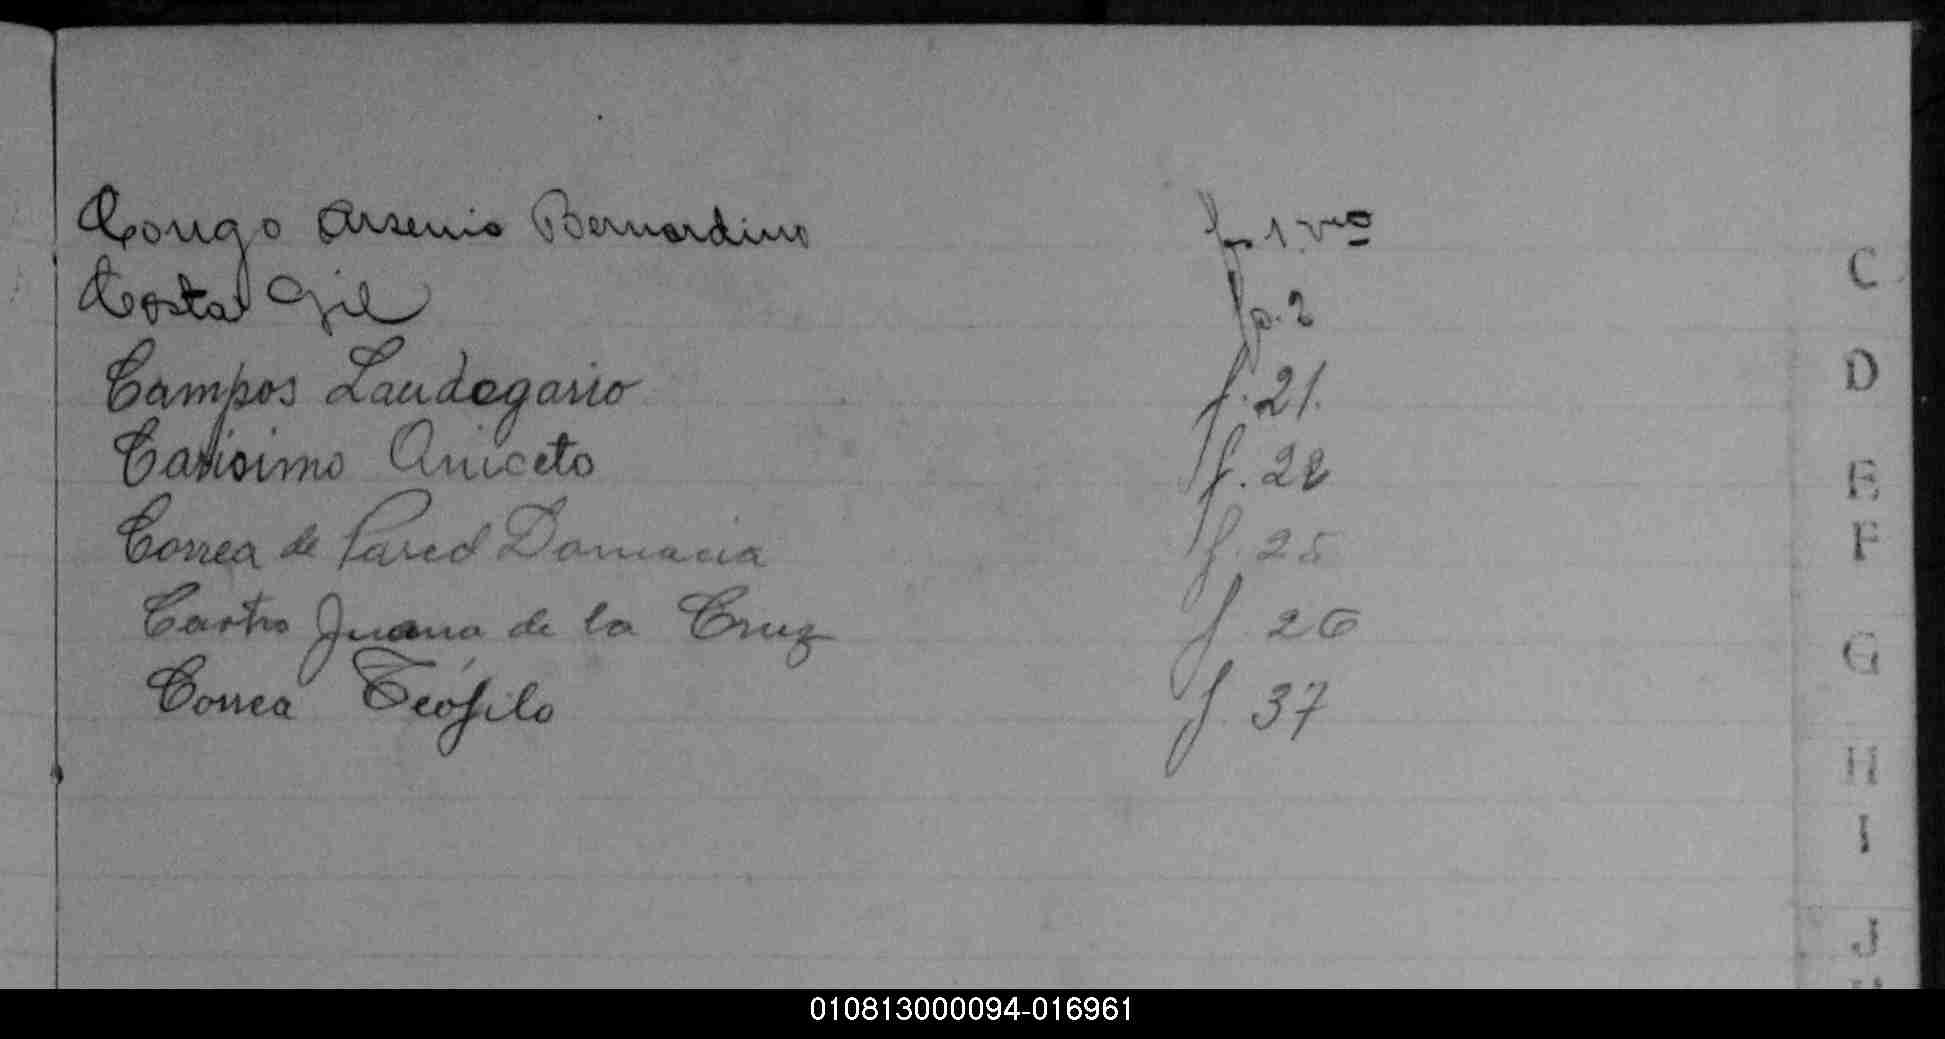 Congo Arsenio Bernardino fs 1 vto
Costa Gil fo. 2
Campos Laudegario f. 21.
Carisimo Aniceto f. 22
Correa de Pared Damacia f. 25
Castro Juana de la Cruz f. 26
Correa Teófilo f. 37
C
D
E
F
G
H
I
J
010813000094-016961